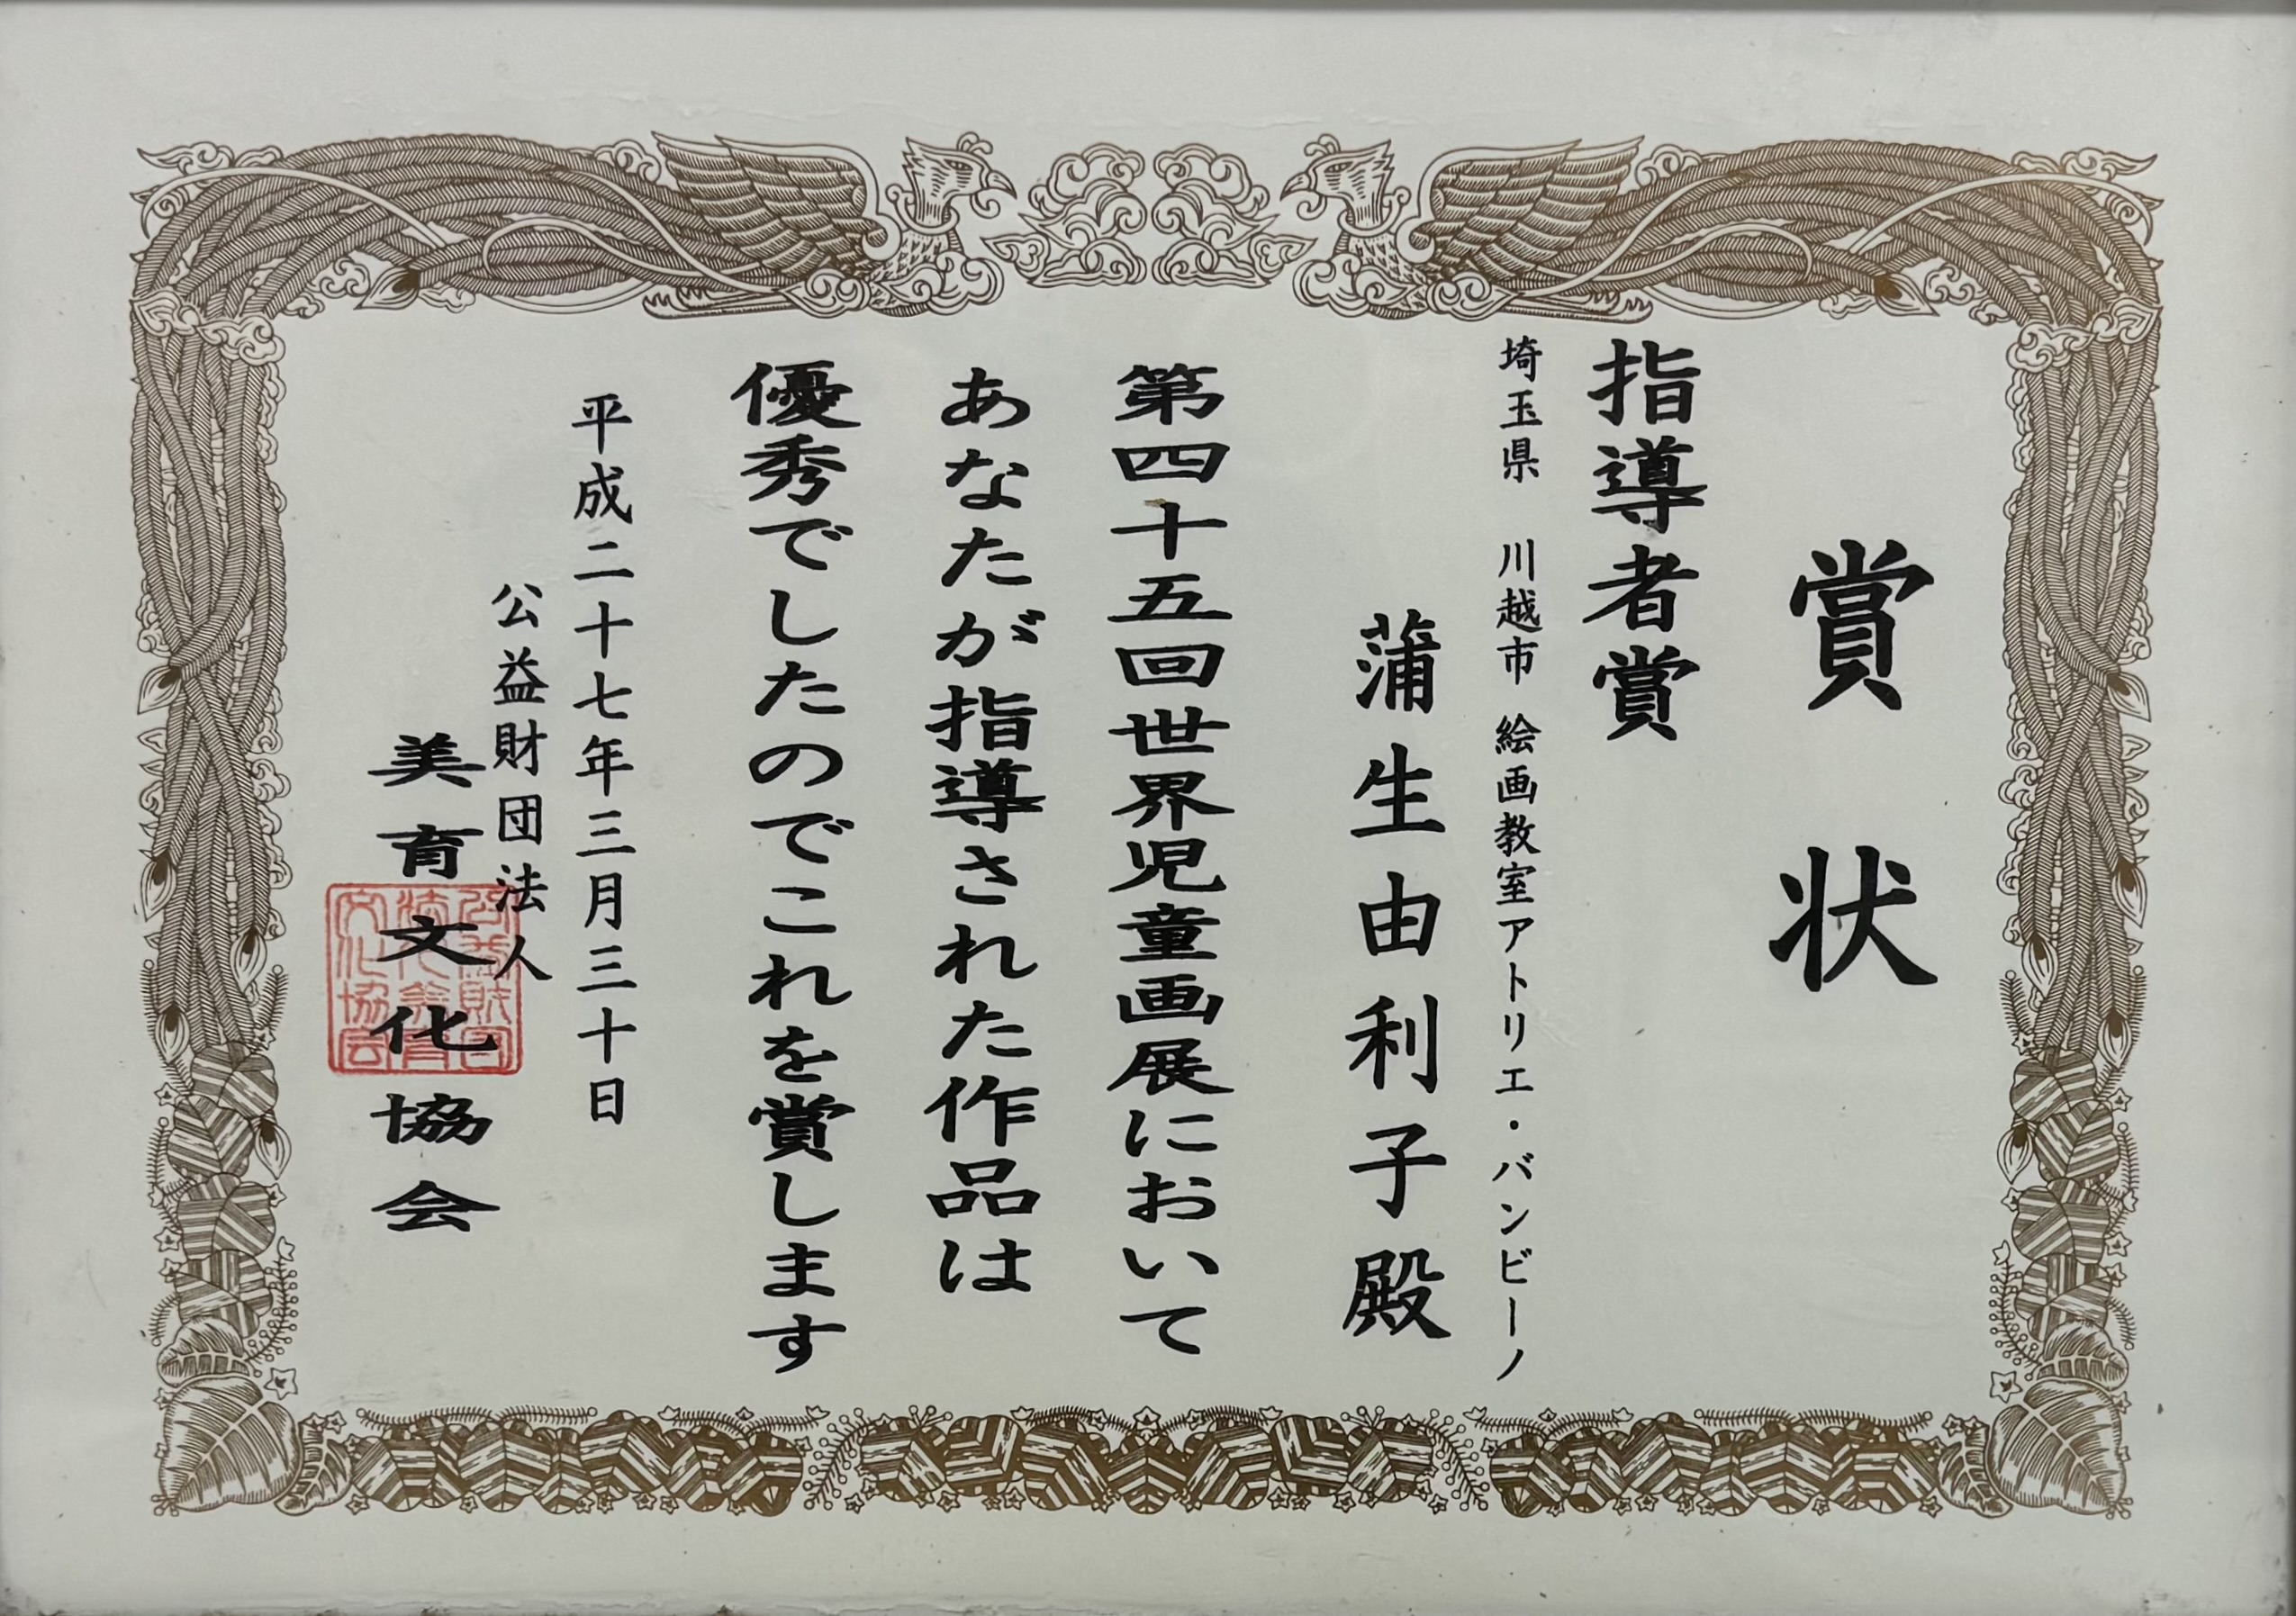 賞状
指導者賞
埼玉県 川越市 絵画教室アトリエ・バンビーノ
蒲生由利子殿
第四十五回世界児童画展において
あなたが指導された作品は
優秀でしたのでこれを賞します
平成二十七年三月三十日
公益財団法人
美育文化協会
公益財団
法人美育
文化協会